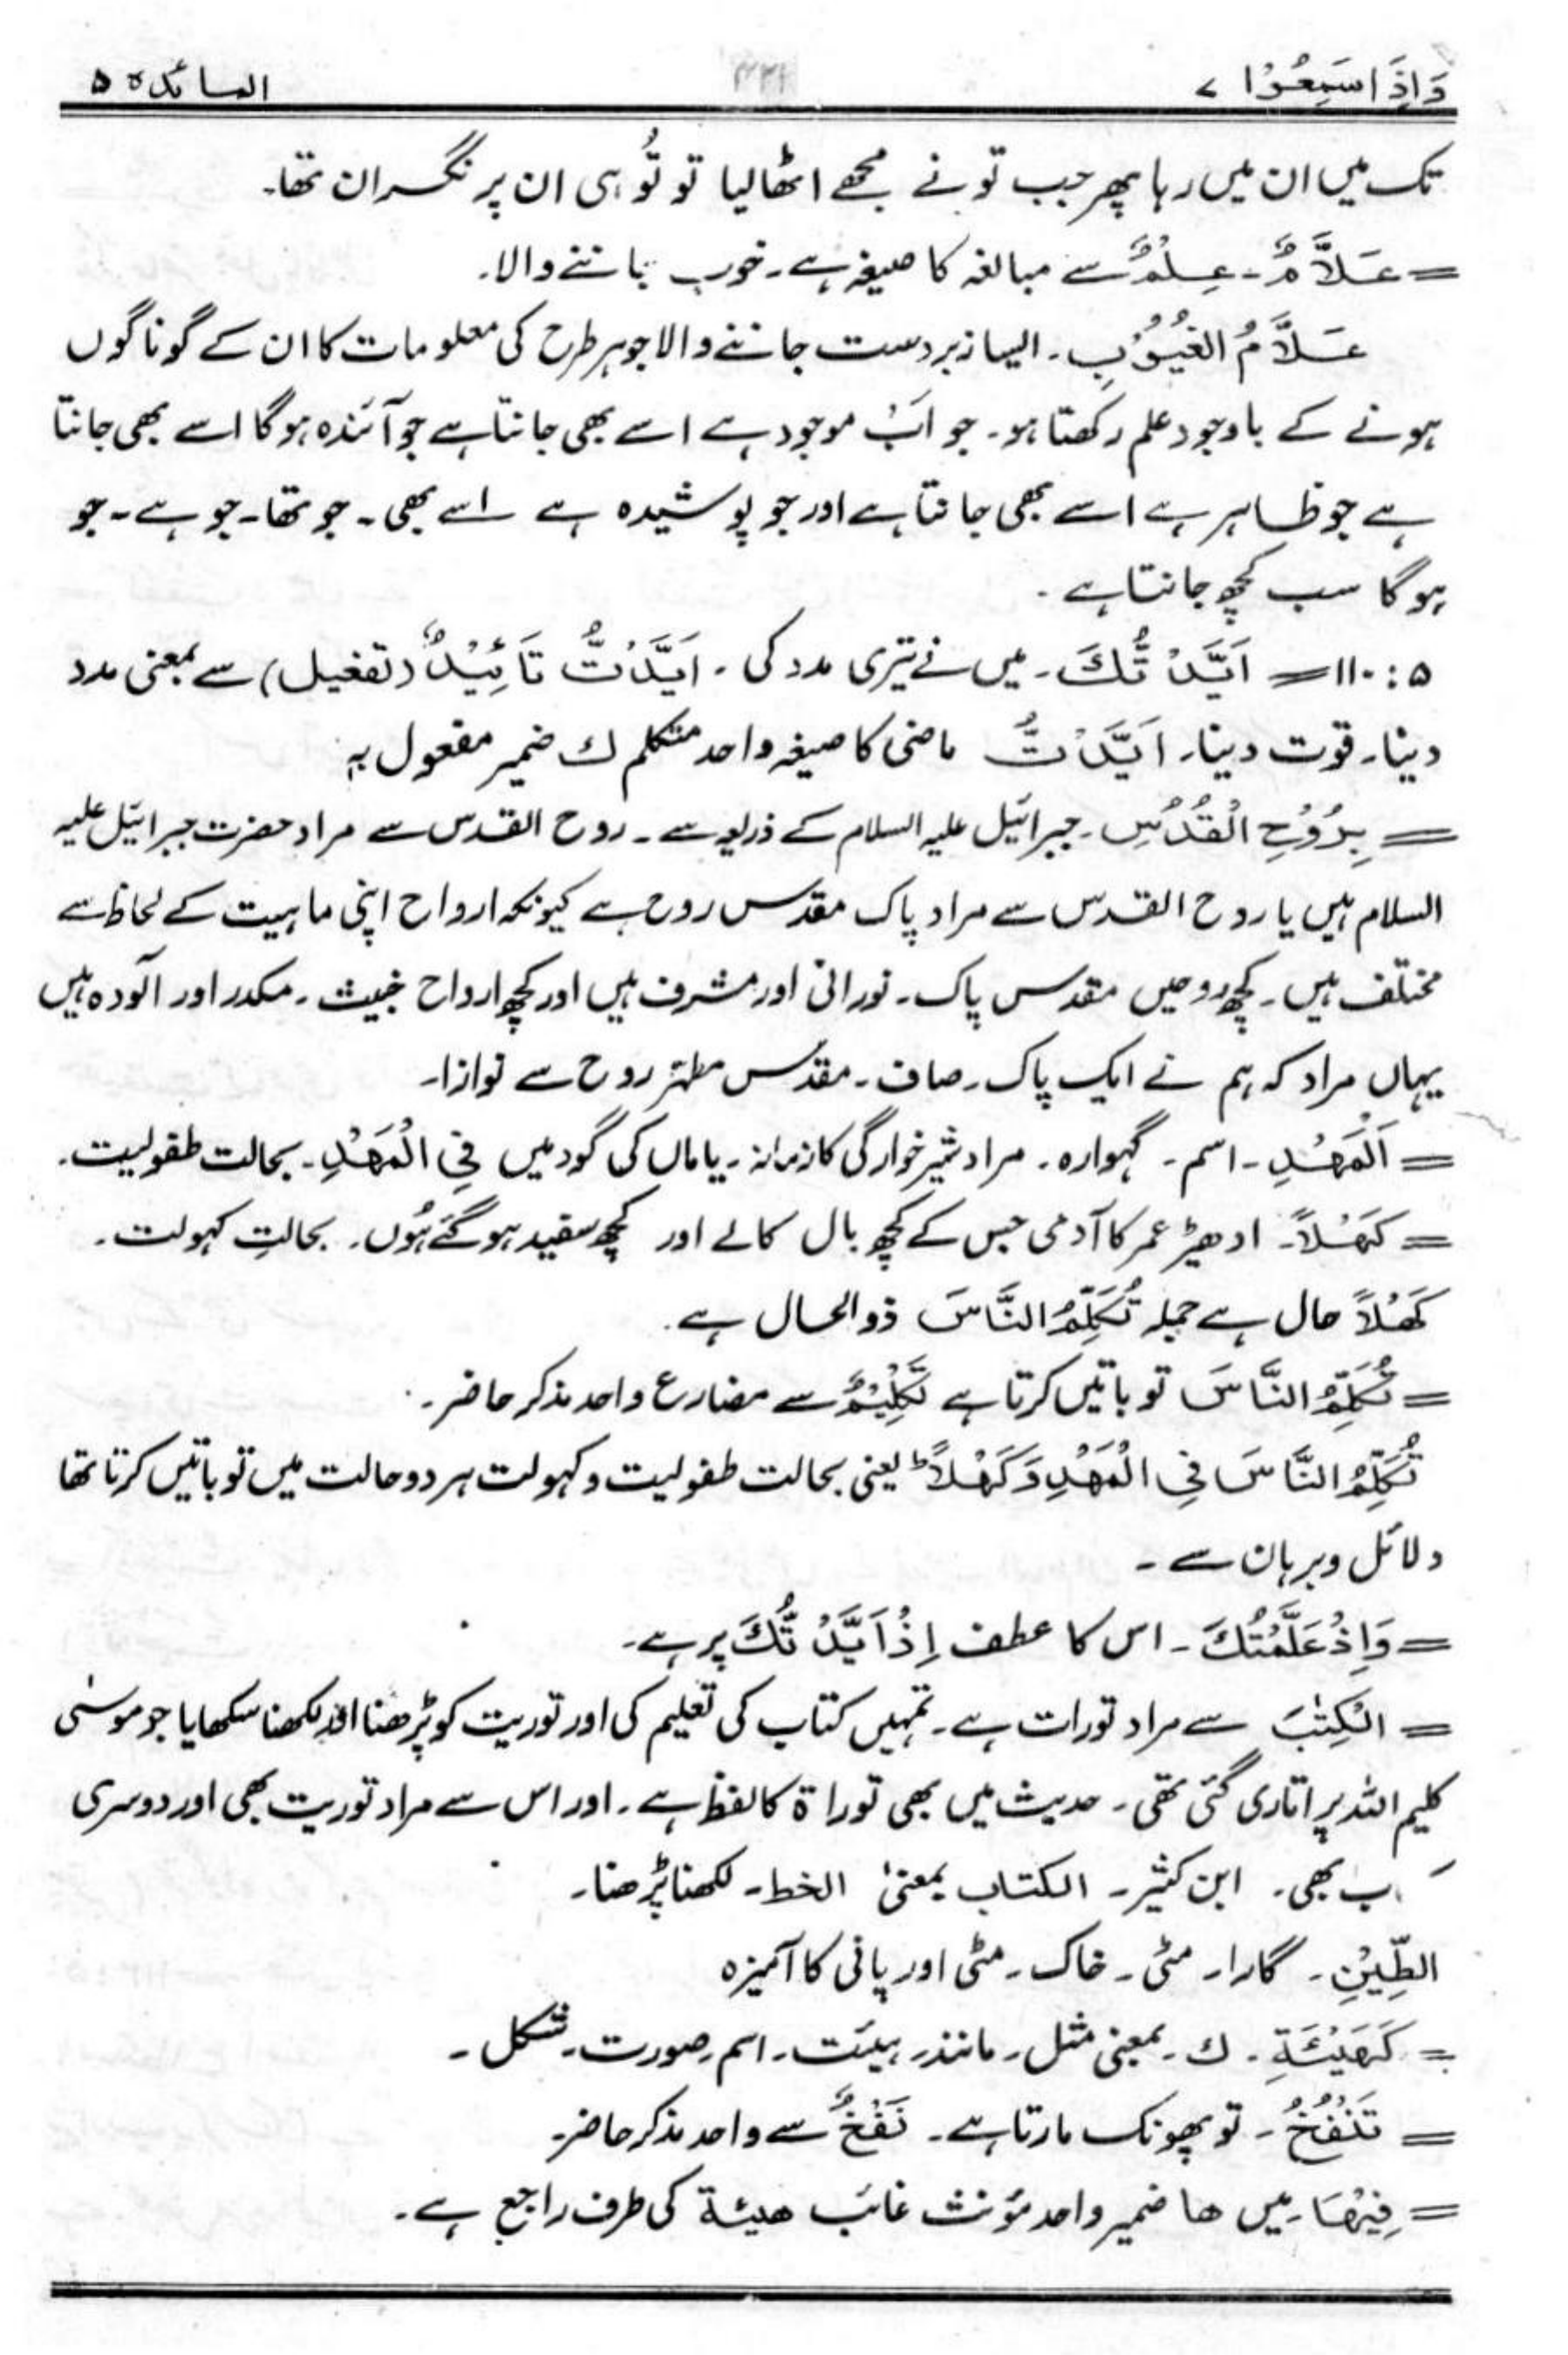 وَاِذَا سَمِعُوْا ۷
المائدہ ۵
تک میں ان میں رہا پھر جب تو نے مجھے اٹھا لیا تو تُو ہی ان پر نگران تھا۔
= عَلَّامٌ۔ عِلْمٌ سے مبالغہ کا صیغہ ہے۔ خوب جاننے والا۔
عَلَّامُ الْغُيُوْبِ۔ ایسا زبردست جاننے والا جو ہر طرح کی معلومات کا ان کے گوناگوں
ہونے کے باوجود علم رکھتا ہو۔ جو اَب موجود ہے اسے بھی جانتا ہے جو آئندہ ہو گا اسے بھی جانتا
ہے جو ظاہر ہے اسے بھی جانتا ہے اور جو پوشیدہ ہے اسے بھی۔ جو تھا۔ جو ہے۔ جو
ہو گا سب کچھ جانتا ہے۔
۵ : ۱۱۰ = اَيَّدْتُّكَ۔ میں نے تیری مدد کی۔ اَيَّدْتُّ تَائِيْدٌ (تفعیل) سے بمعنی مدد
دینا۔ قوت دینا۔ اَيَّدْتُّ ماضی کا صیغہ واحد متکلم ك ضمیر مفعول بہ
= بِرُوْحِ الْقُدُسِ۔ جبرائیل علیہ السلام کے ذریعہ سے۔ روح القدس سے مراد حضرت جبرائیل علیہ
السلام ہیں یا روح القدس سے مراد پاک مقدس روح ہے کیونکہ ارواح اپنی ماہیت کے لحاظ سے
مختلف ہیں۔ کچھ روحیں مقدس پاک۔ نورانی اور مشرف ہیں اور کچھ ارواح خبیث۔ مکدر اور آلودہ ہیں
یہاں مراد کہ ہم نے ایک پاک۔ صاف۔ مقدس مطہّر روح سے نوازا۔
= اَلْمَهْدِ۔ اسم۔ گہوارہ۔ مراد شیر خوارگی کا زمانہ۔ یا ماں کی گود میں فِی الْمَهْدِ۔ بحالت طفولیت۔
= كَهْلًا۔ ادھیڑ عمر کا آدمی جس کے کچھ بال کالے اور کچھ سفید ہو گئے ہُوں۔ بحالتِ کہولت۔
كَهْلًا حال ہے جملہ تُكَلِّمُ النَّاسَ ذوالحال ہے۔
= تُكَلِّمُ النَّاسَ تو باتیں کرتا ہے تَكْلِيْمٌ سے مضارع واحد مذکر حاضر۔
تُكَلِّمُ النَّاسَ فِی الْمَهْدِ وَكَهْلًا ؕ یعنی بحالت طفولیت و کہولت ہر دو حالت میں تو باتیں کرتا تھا
دلائل و برہان سے۔
= وَاِذْ عَلَّمْتُكَ۔ اس کا عطف اِذْ اَيَّدْتُّكَ پر ہے۔
= الْكِتٰبَ سے مراد تورات ہے۔ تمہیں کتاب کی تعلیم کی اور توریت کو پڑھنا اور لکھنا سکھایا جو موسٰی
کلیم اللہ پر اتاری گئی تھی۔ حدیث میں بھی توراۃ کا لفظ ہے۔ اور اس سے مراد توریت بھی اور دوسری
ب بھی۔ ابن کثیر۔ الکتاب بمعنیٰ الخط۔ لکھنا پڑھنا۔
الطِّيْنِ۔ گارا۔ مٹی۔ خاک۔ مٹی اور پانی کا آمیزہ
= كَهَيْئَةِ۔ ك۔ بمعنی مثل۔ مانند۔ ہیئت۔ اسم۔ صورت۔ شکل۔
= تَنْفُخُ۔ تو پھونک مارتا ہے۔ نَفْخٌ سے واحد مذکر حاضر۔
= فِيْهَا۔ میں ھا ضمیر واحد مؤنث غائب ھيئة کی طرف راجع ہے۔